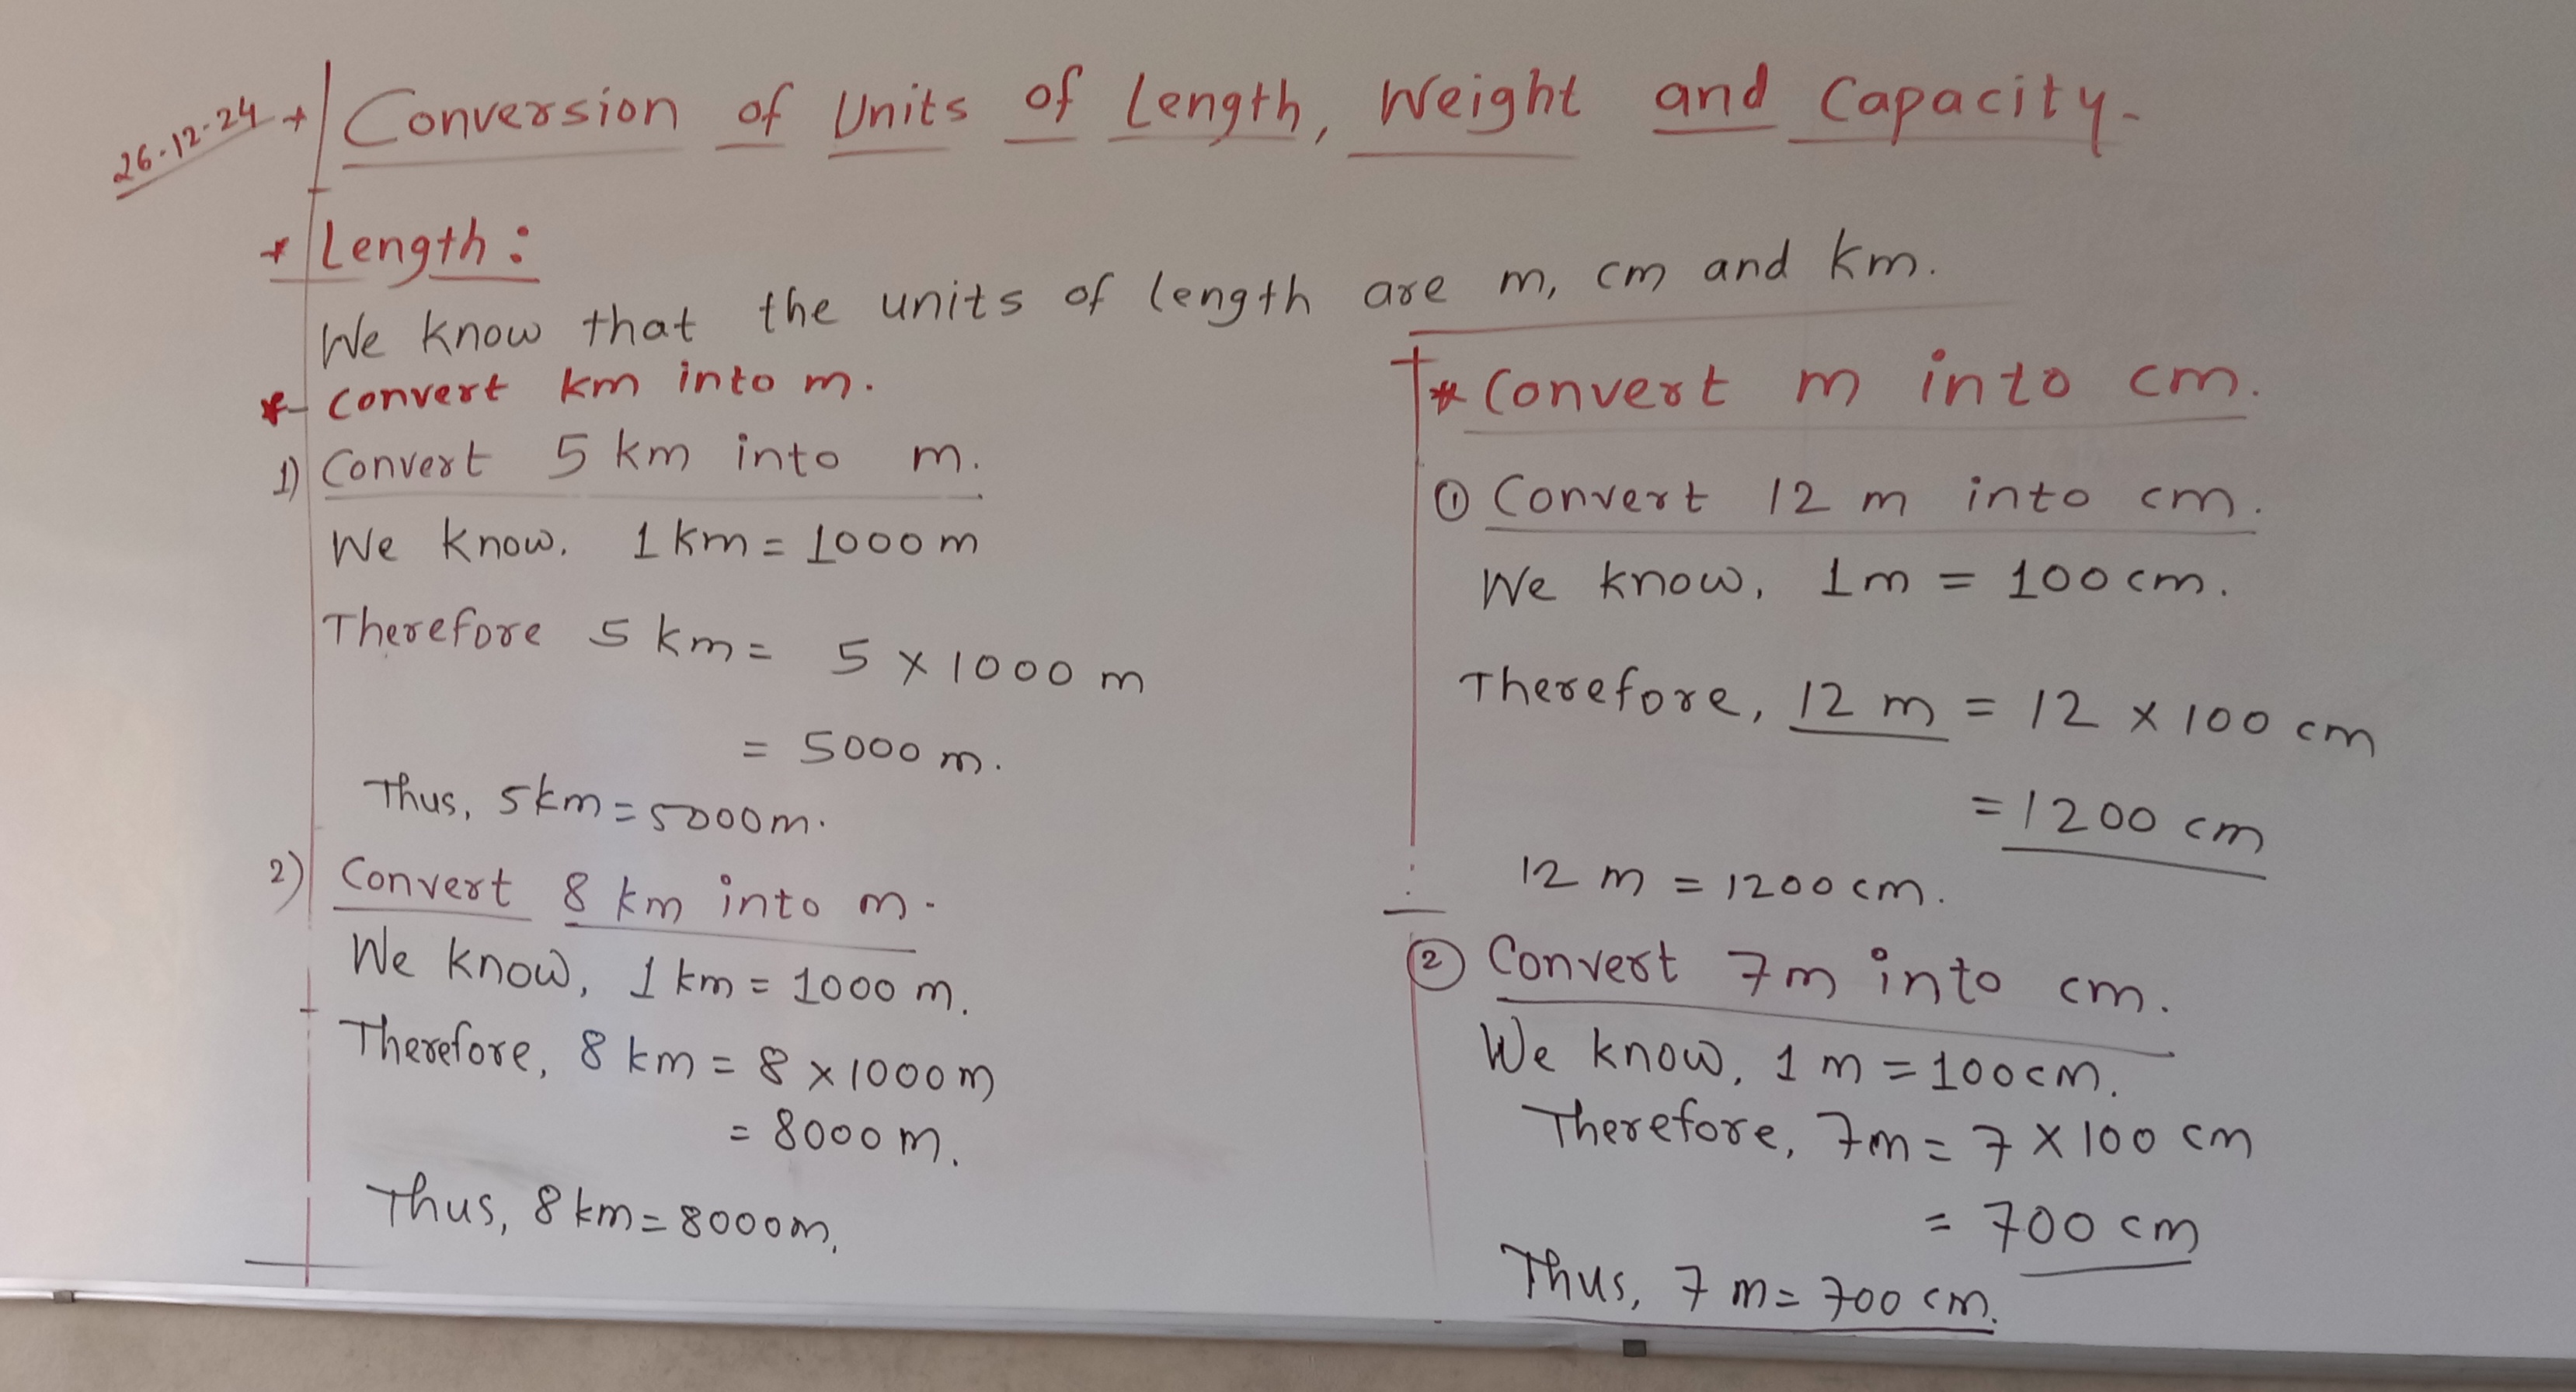 26-12-24
Conversion of Units of Length, Weight and Capacity.
* Length:
We know that the units of length are m, cm and km.
* Convert km into m.
1) Convert 5 km into m.
We know. 1 km = 1000 m
Therefore 5 km = 5 × 1000 m
= 5000 m.
Thus, 5km = 5000m.
2) Convert 8 km into m.
We know, 1 km = 1000 m.
Therefore, 8 km = 8 × 1000 m
= 8000 m.
Thus, 8 km = 8000m.
* Convert m into cm.
① Convert 12 m into cm.
We know, 1m = 100 cm.
Therefore, 12 m = 12 × 100 cm
= 1200 cm
12 m = 1200 cm.
② Convert 7m into cm.
We know, 1 m = 100cm.
Therefore, 7m = 7 × 100 cm
= 700 cm
Thus, 7 m = 700 cm.